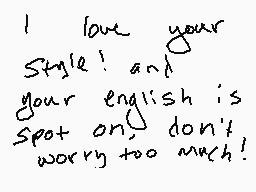 I love your
style! and
your english is
spot on, don't
worry too much!